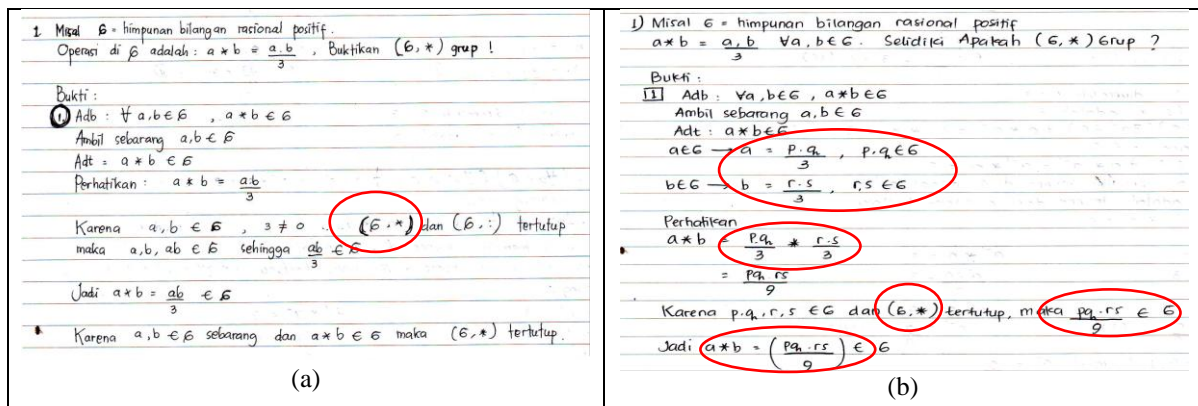 1. Misal G = himpunan bilangan rasional positif.
Operasi di G adalah : a * b = a.b/3 , Buktikan (G, *) grup !
Bukti :
1. Adb : ∀ a,b ∈ G , a * b ∈ G
Ambil sebarang a,b ∈ G
Adt = a * b ∈ G
Perhatikan : a * b = a.b/3
Karena a, b ∈ G , 3 ≠ 0 (G, *) dan (G, :) tertutup
maka a,b, ab ∈ G sehingga ab/3 ∈ G
Jadi a * b = ab/3 ∈ G
Karena a,b ∈ G sebarang dan a * b ∈ G maka (G, *) tertutup.
(a)
1) Misal G = himpunan bilangan rasional positif
a * b = a, b/3 ∀a, b ∈ G. Selidiki Apakah (G, *) Grup ?
Bukti :
1 Adb : ∀a, b ∈ G , a * b ∈ G
Ambil sebarang a, b ∈ G
Adt : a * b ∈ G
a ∈ G → a = p.q/3 , p.q ∈ G
b ∈ G → b = r.s/3 , r,s ∈ G
Perhatikan
a * b = p.q/3 * r.s/3
= pq rs/9
Karena p.q, r, s ∈ G dan (G, *) tertutup, maka pq.rs/9 ∈ G
Jadi a * b = (pq.rs/9) ∈ G
(b)